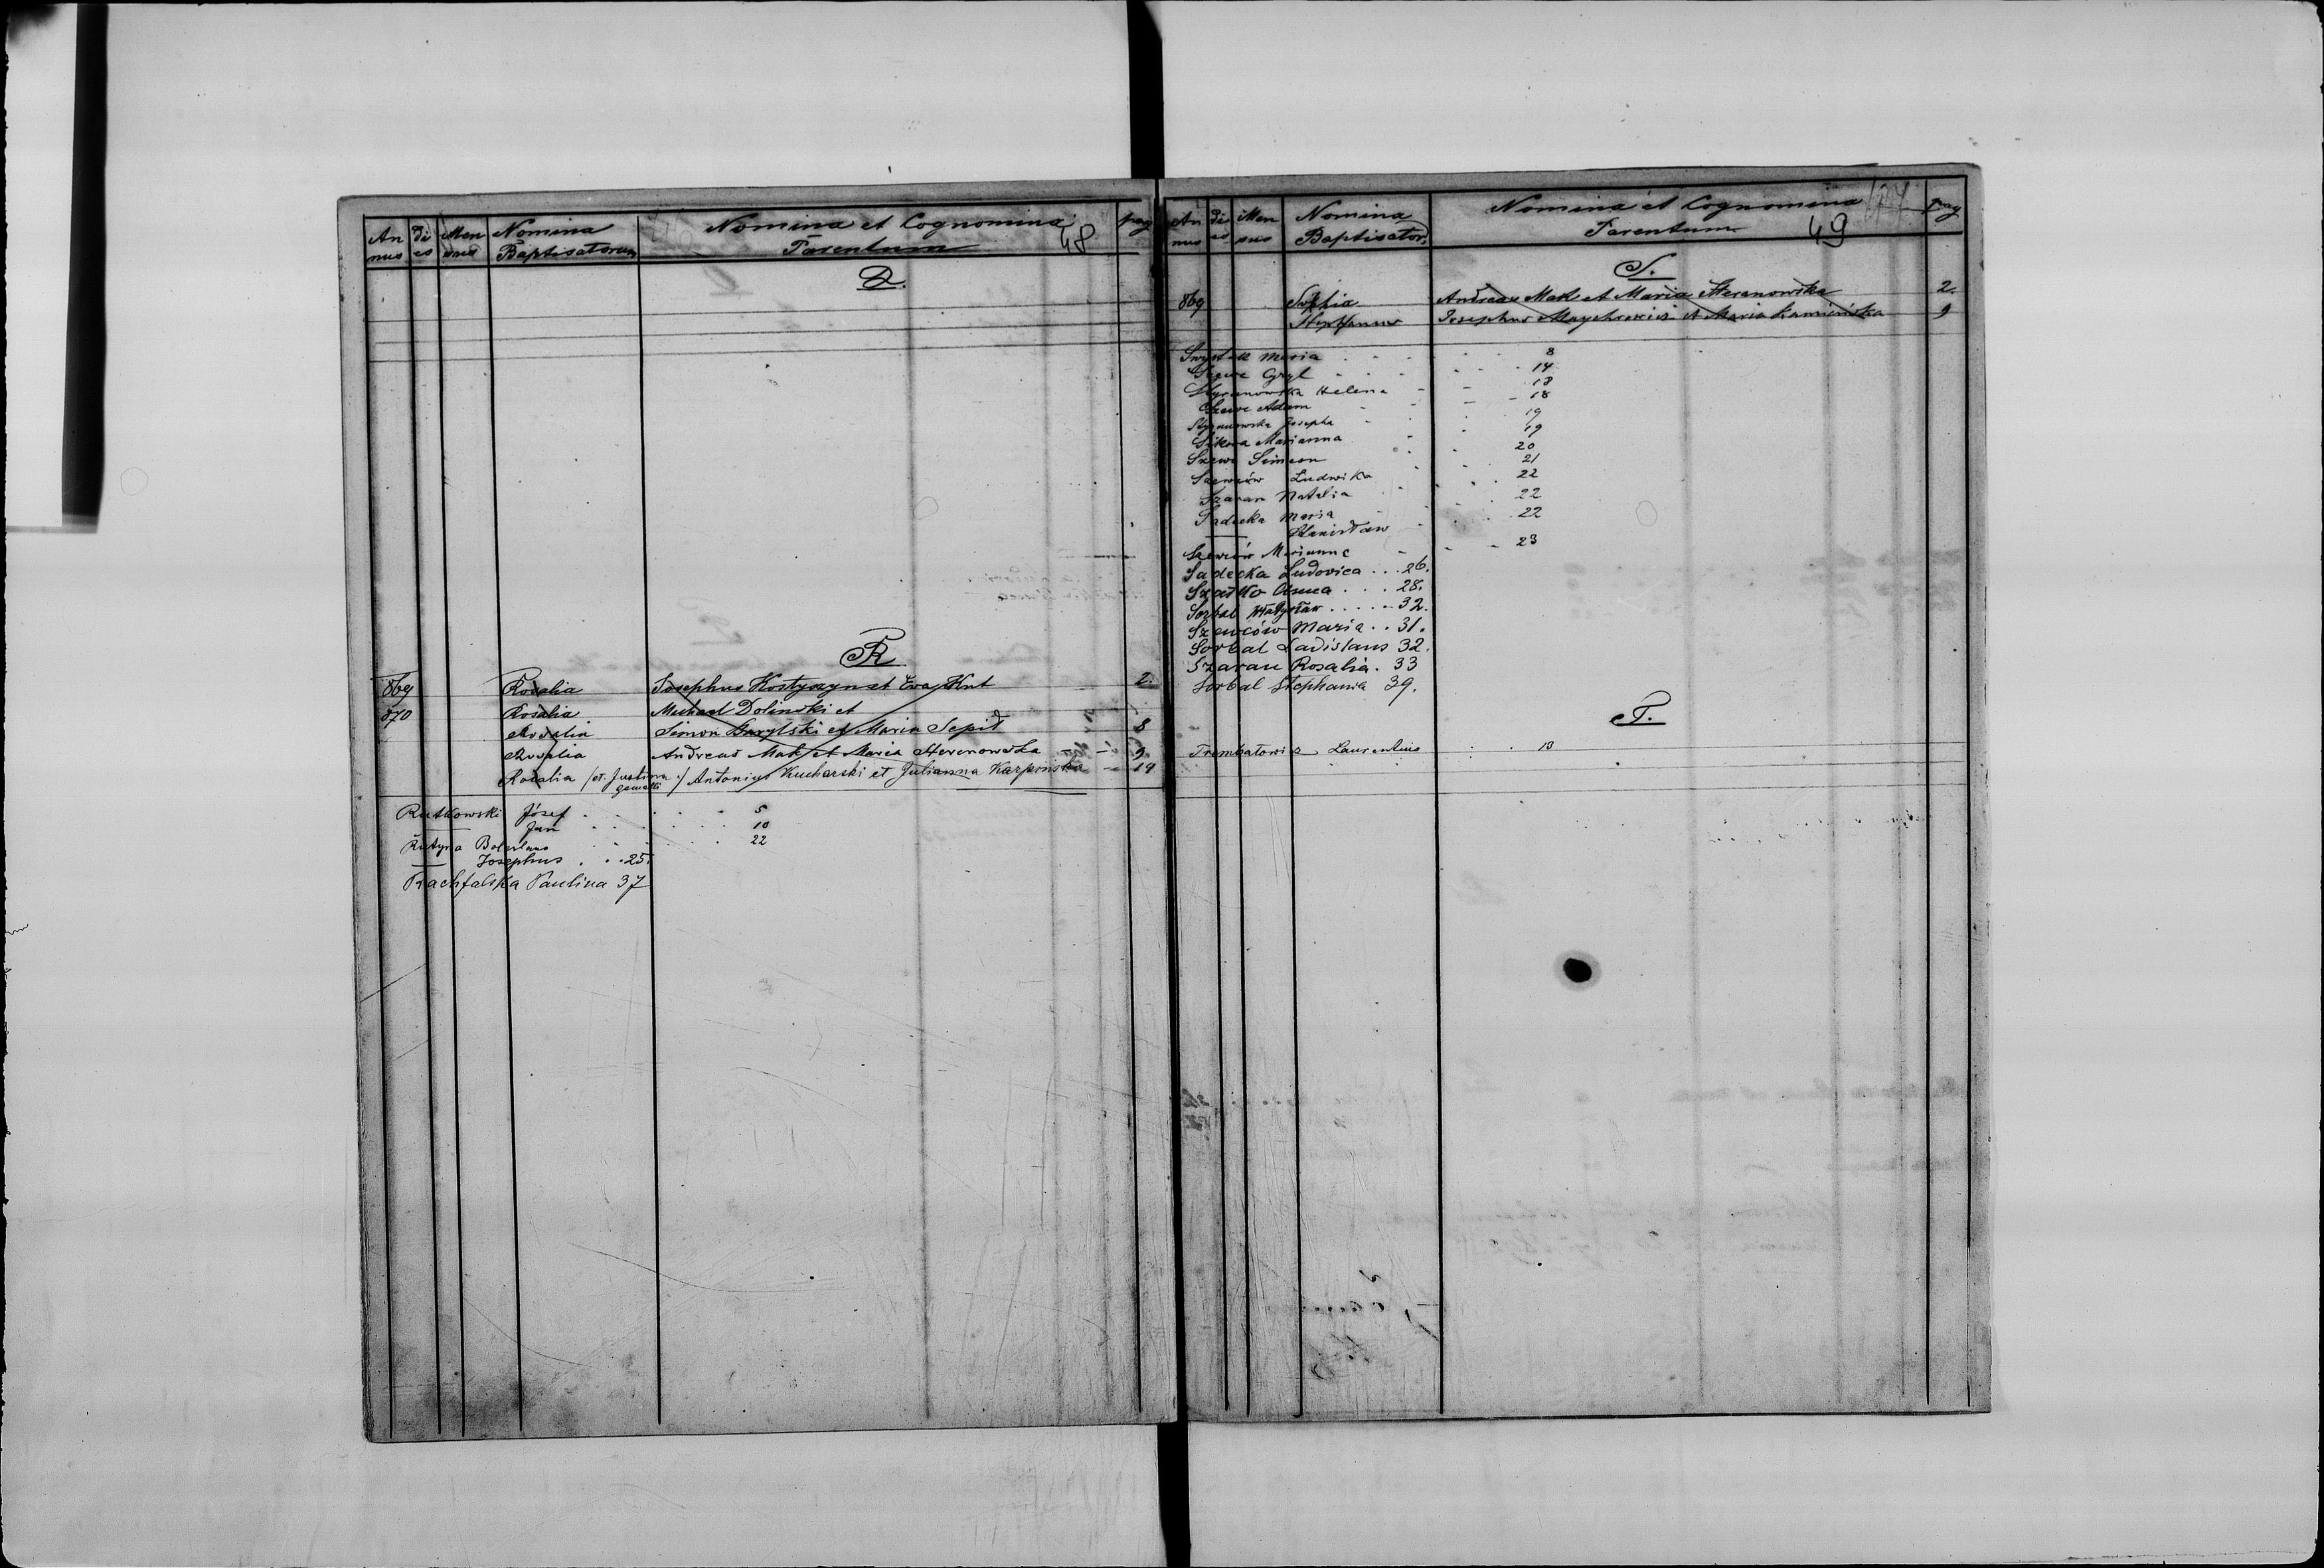 An di Men Nomina Nomina et Cognomina pag
nus es sus Baptisatorum Parentum 48
Q.
R
869 Rosalia Josephus Kostyszyn et Eva Knt 2.
870 Rosalia Michael Dolinski et
Rosalia Simon Barylski et Maria Sepid 8
Rosalia Andreas Mak et Maria Steranowska 9
Rosalia /et Justina :/ Antonius Kucharski et Julianna Karpinska 19
gemelli
Rutkowski Józef 5
— Jan 10
Rutyna Boleslaus 22
— Josephus . . 25
Rachfalska Paulina 37
An di Men Nomina Nomina et Cognomina pag
nus es sus Baptisator. Parentum 49
S.
869 Sophia Andreas Mak et Maria Steranowska 2.
Stephanus Josephus Maychrowicz et Maria Kaminska 9
Maria 8
Szewc Cyryl 14
Styranowska Helena 18
Szewc Adam 18
Styranowska Josepha 19
Sikora Marianna 19
Szewc Simeon 20
Szewców Ludwika 21
Szaran Natalia 22
Sadecka Maria 22
— Stanisław 22
Szewców Marianna 23
Sadecka Ludovica . . . 26.
Szatko Anna . . . 28.
Sorbal Władysław . . . . . 32.
Szewców Maria . . 31.
Sorbal Ladislaus 32.
Szaran Rosalia . 33
Sorbal Stephania 39.
T.
Trembatowicz Laurentius 13